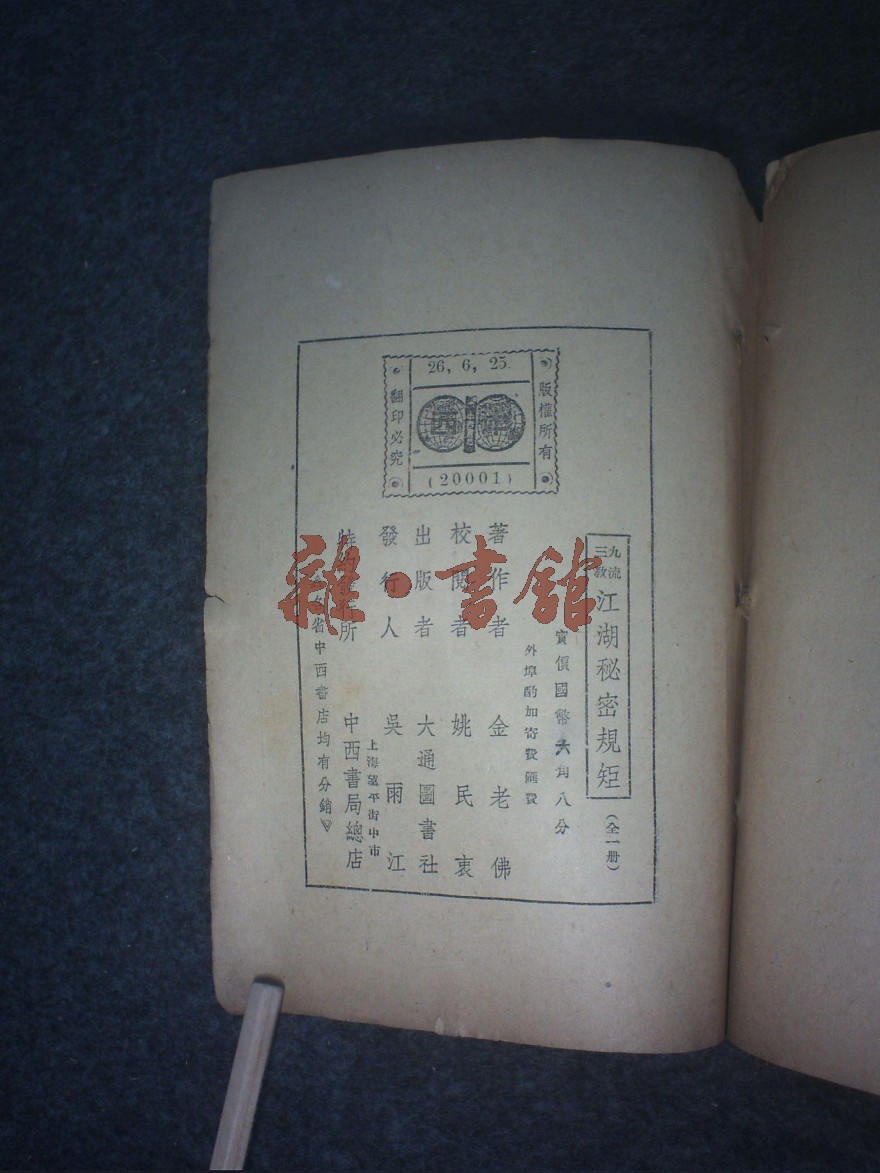 版權所有
26, 6, 25.
中西
(20001)
翻印必究
三教九流
江湖秘密規矩
(全一册)
實價國幣六角八分
外埠酌加寄費匯費
著作者 金老佛
校閱者 姚民哀
出版者 大通圖書社
發行人 吳雨江
上海望平街中市
所 中西書局總店
省中西書店均有分銷
雜·書館